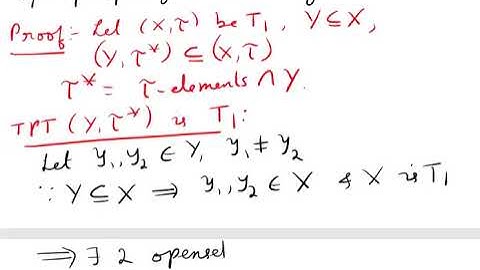 Proof:- Let (X,τ) be T₁, Y⊆X,
(Y, τ*) ⊆ (X, τ)
τ* = τ-elements ∩ Y.
TPT (Y, τ*) is T₁:
Let y₁, y₂ ∈ Y, y₁ ≠ y₂
∵ Y ⊆ X ⇒ y₁, y₂ ∈ X & X is T₁
⇒ ∃ 2 openset